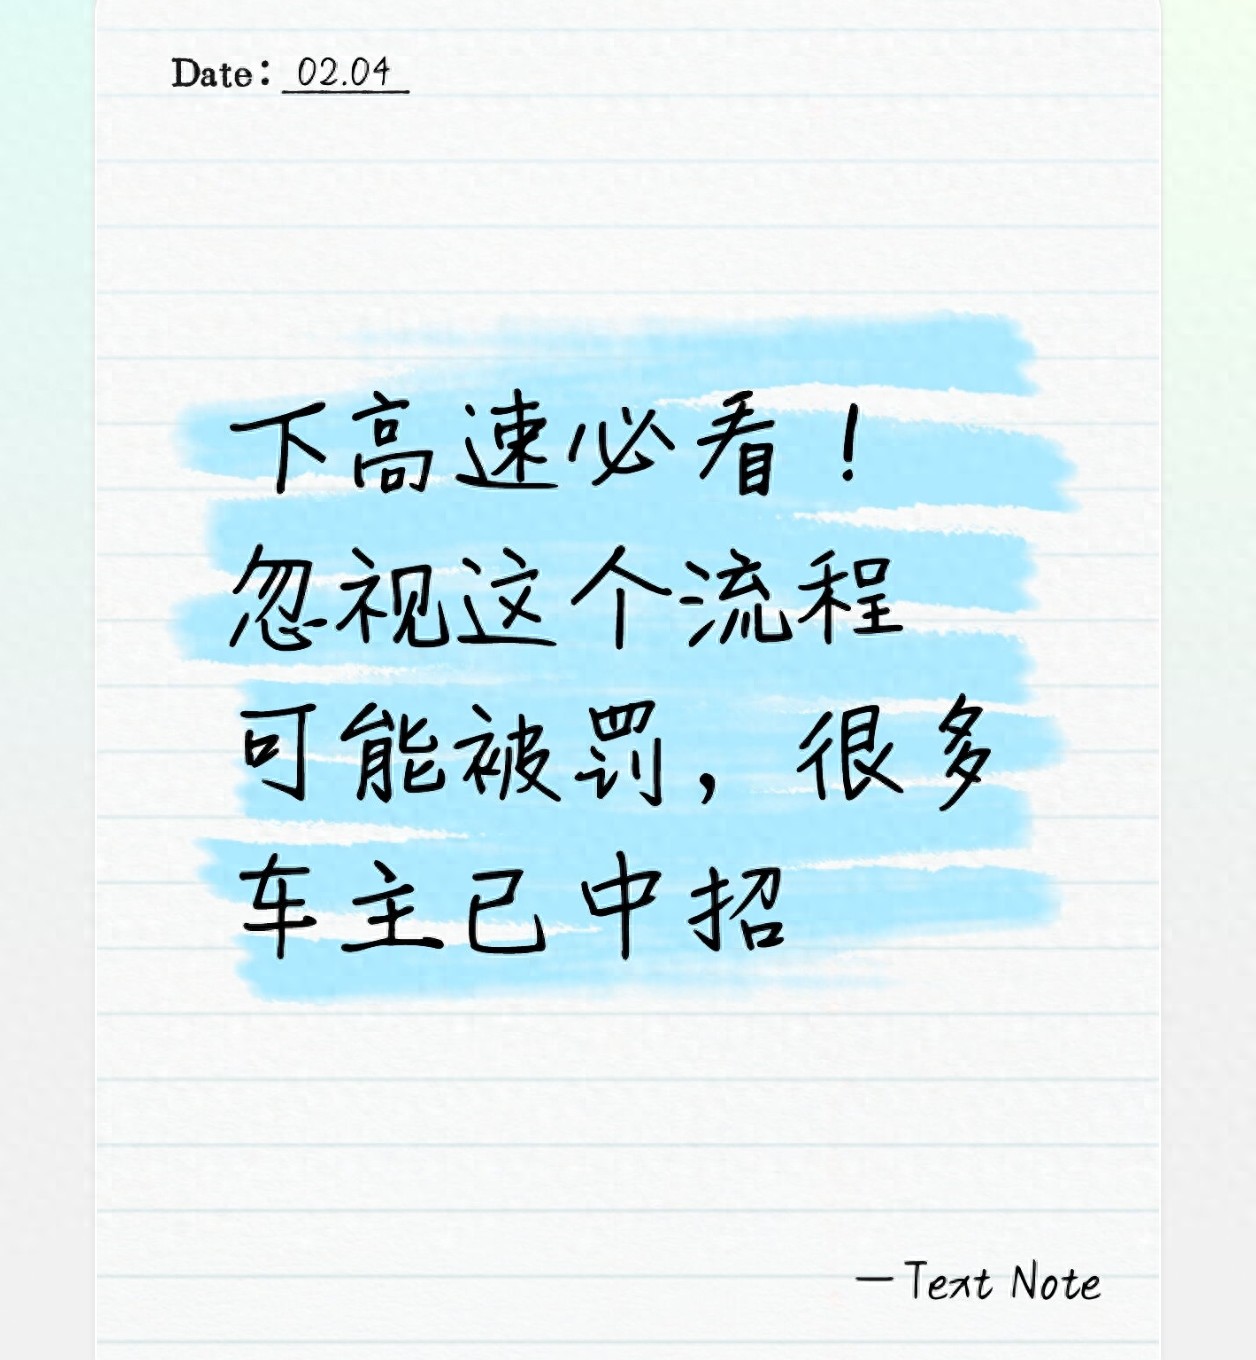 Date: 02.04
下高速必看！
忽视这个流程
可能被罚，很多
车主已中招
—Text Note